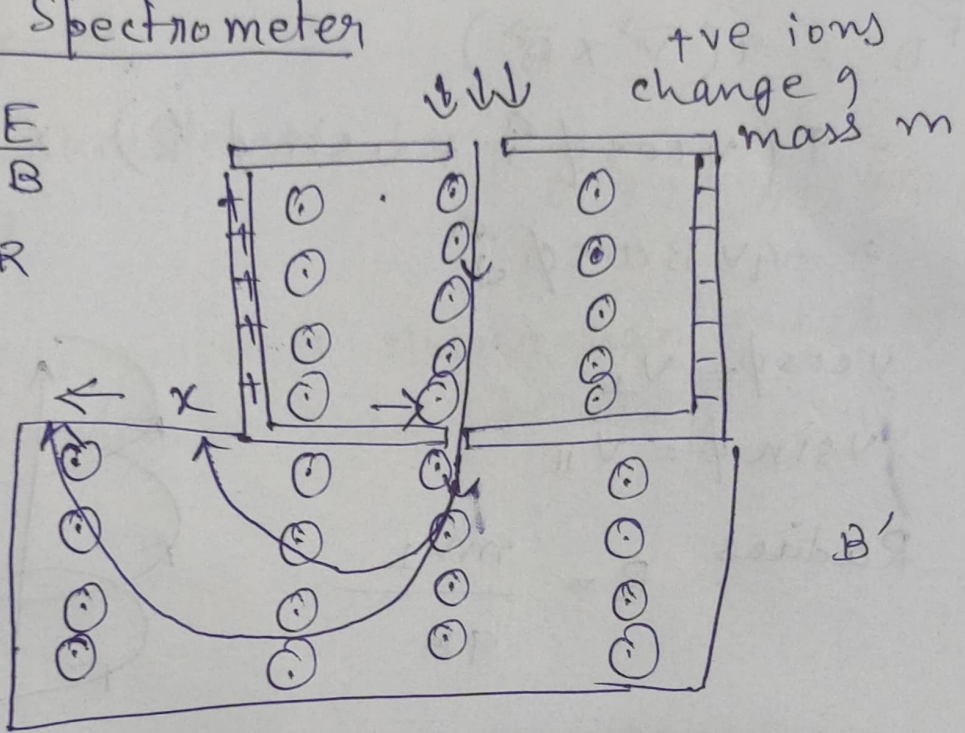 Spectrometer
+ve ions
change q
mass m
E
B
R
+
+
+
+
+
x
B'